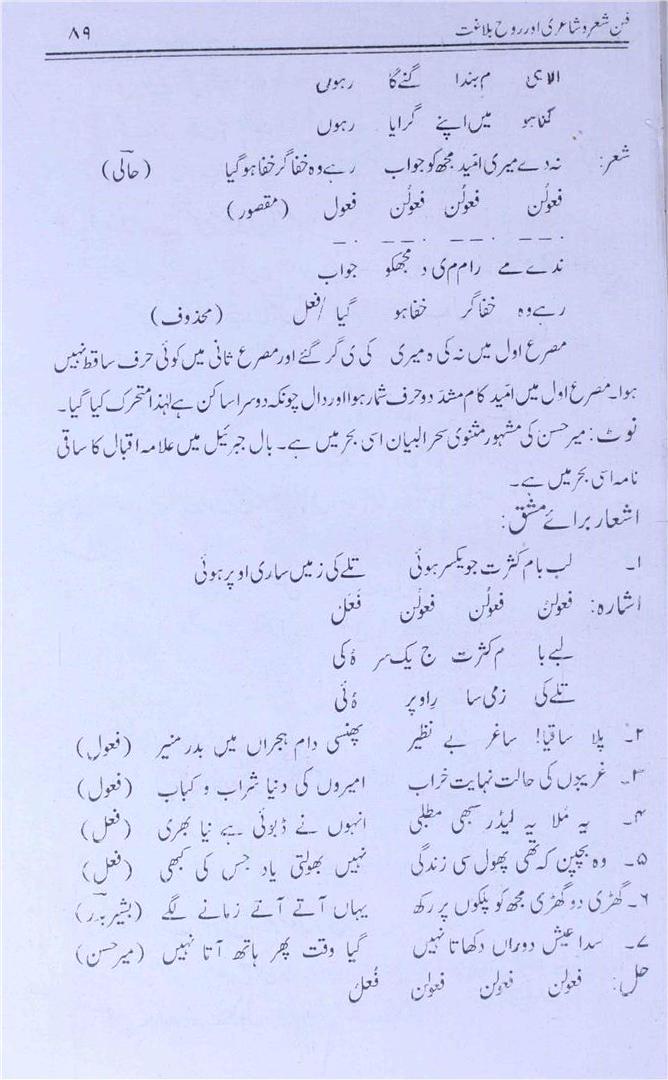 فن شعر و شاعری اور روح بلاغت ۸۹
الاہی م بندا گنے گا رہوں
گناہو میں اپنے گرایا رہوں
شعر: نہ دے میری امّید مجھ کو جواب رہے وہ خفا گر خفا ہو گیا (حالی)
فعولُن فعولُن فعولُن فعول (مقصور)
ندے مے رام م ی د مجھکو جواب
رہے وہ خفا گر خفا ہو گیا/فعل (محذوف)
مصرع اول میں نہ کی ہ میری کی ی گر گئے اور مصرع ثانی میں کوئی حرف ساقط نہیں
ہوا۔ مصرع اول میں امّید کا م مشدّد دو حرف شمار ہوا اور دال چونکہ دوسرا ساکن ہے لہٰذا متحرک کیا گیا۔
نوٹ: میر حسن کی مشہور مثنوی سحر البیان اسی بحر میں ہے۔ بال جبرئیل میں علامہ اقبال کا ساقی
نامہ اسی بحر میں ہے۔
اشعار برائے مشق:
۱۔ لب بام کثرت جو یکسر ہوئی تلے کی زمیں ساری اوپر ہوئی
اشارہ: فعولن فعولُن فعولن فَعَل
لبے با م کثرت ج یک سر ہُ ئی
تلے کی زمی سا رِ اوپر ہُ ئی
۲۔ پلا ساقیا! ساغر بے نظیر پھنسی دام ہجراں میں بدر منیر (فعول)
۳۔ غریبوں کی حالت نہایت خراب امیروں کی دنیا شراب و کباب (فعول)
۴۔ یہ مُلا یہ لیڈر سبھی مطلبی انہوں نے ڈبوئی ہے نیا بھری (فعل)
۵۔ وہ بچپن کہ تھی پھول سی زندگی نہیں بھولتی یاد جس کی کبھی (فعل)
۶۔ گھڑی دو گھڑی مجھ کو پلکوں پر رکھ یہاں آتے آتے زمانے لگے (بشیر بدر)
۷۔ سدا عیش دوراں دکھاتا نہیں گیا وقت پھر ہاتھ آتا نہیں (میر حسن)
حل: فعولن فعولن فعولن فَعل